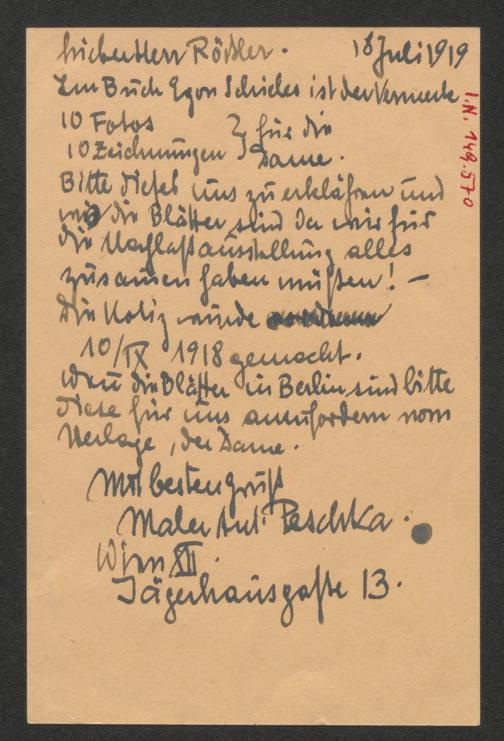 Lieber Herr Rößler. 18 Juli 1919
Im Buch Egon Schieles ist der Vermerk
10 Fotos } für die
10 Zeichnungen } Dame.
Bitte dieses uns zu erklähren und
wo die Blätter sind da wir für
die Nachlaßausstellung alles
zusamen haben müßen! —
Die Notiz wurde
10/IX 1918 gemacht.
Wenn die Blätter in Berlin sind bitte
diese für uns anzufordern vom
Verlage, der Dame.
Mit besten Gruß
Maler Ant. Peschka.
Wien XII.
Jägerhausgaße 13.
I.N. 149.570